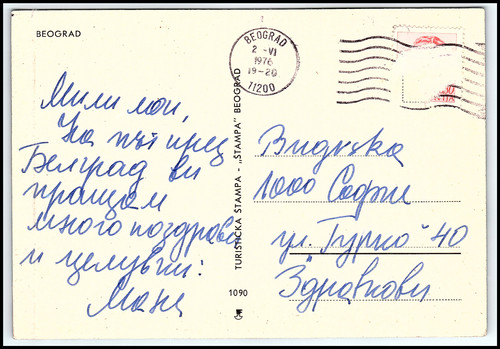 BEOGRAD
BEOGRAD
2 -VI
1976
19-20
11200
Мили мои,
На път през
Белград ви
пращам
много поздрави
и целувки:
TURISTIČKA ŠTAMPA - „ŠTAMPA" BEOGRAD
1090
1000 София
ул. "Гурко" 40
Здравкови